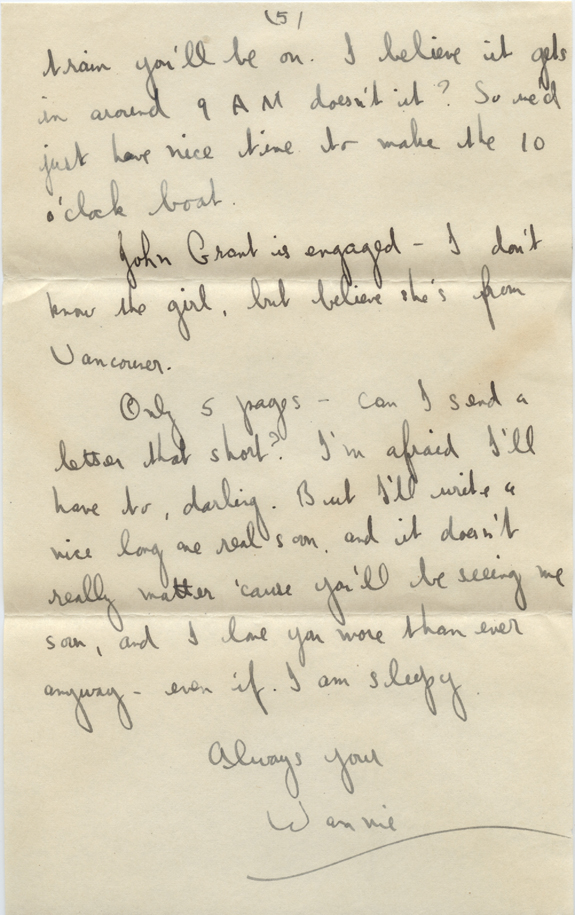 (5)
train you'll be on. I believe it gets
in around 9 A M doesn't it? So we'd
just have nice time to make the 10
o'clock boat.
John Grant is engaged - I don't
know the girl, but believe she's from
Vancouver.
Only 5 pages - can I send a
letter that short? I'm afraid I'll
have to, darling. But I'll write a
nice long one real soon, and it doesn't
really matter 'cause you'll be seeing me
soon, and I love you more than ever
anyway - even if I am sleepy.
Always your
Wannie